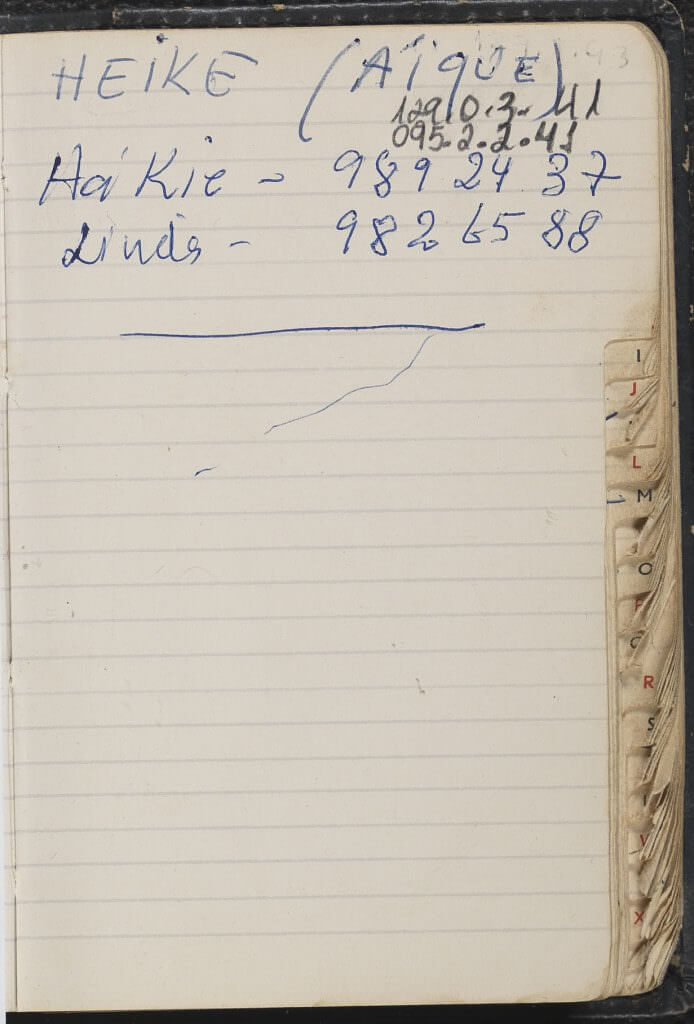 HEIKE (AÏQUE)
1290.3.41
095.2.2.41
Haïkie - 989 24 37
Linda - 982 65 88
I
J
L
M
O
P
R
S
V
X